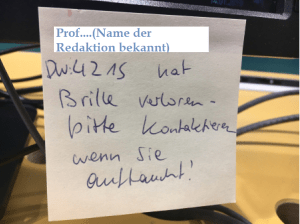 Prof....(Name der
Redaktion bekannt)
DW:4215 hat
Brille verloren -
bitte kontaktieren
wenn sie
auftaucht!